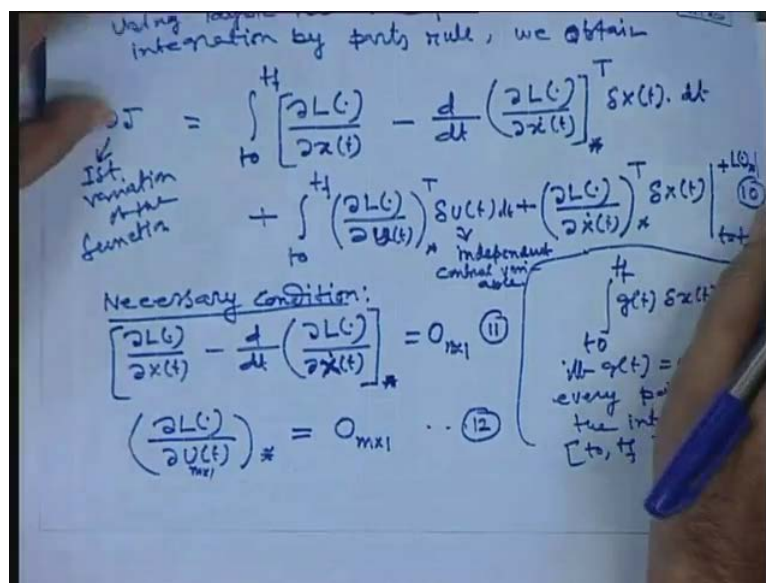 Using
integration by parts rule, we obtain
∂J = ∫_{t0}^{tf} [∂L(·)/∂x(t) - d/dt (∂L(·)/∂ẋ(t))]^T_* δx(t). dt
Ist.
variation
of the
function
+ ∫_{t0}^{tf} (∂L(·)/∂u(t))^T_* δu(t) dt + (∂L(·)/∂ẋ(t))^T_* δx(t) | + L(·)_* (10)
independent
control vari-
able
Necessary condition:
[∂L(·)/∂x(t) - d/dt (∂L(·)/∂ẋ(t))]_* = 0_{n×1} (11)
(∂L(·)/∂U(t)_{m×1})_* = 0_{m×1} .. (12)
∫_{t0}^{tf} g(t) δx(t)
g(t) =
every
the
[t0, tf